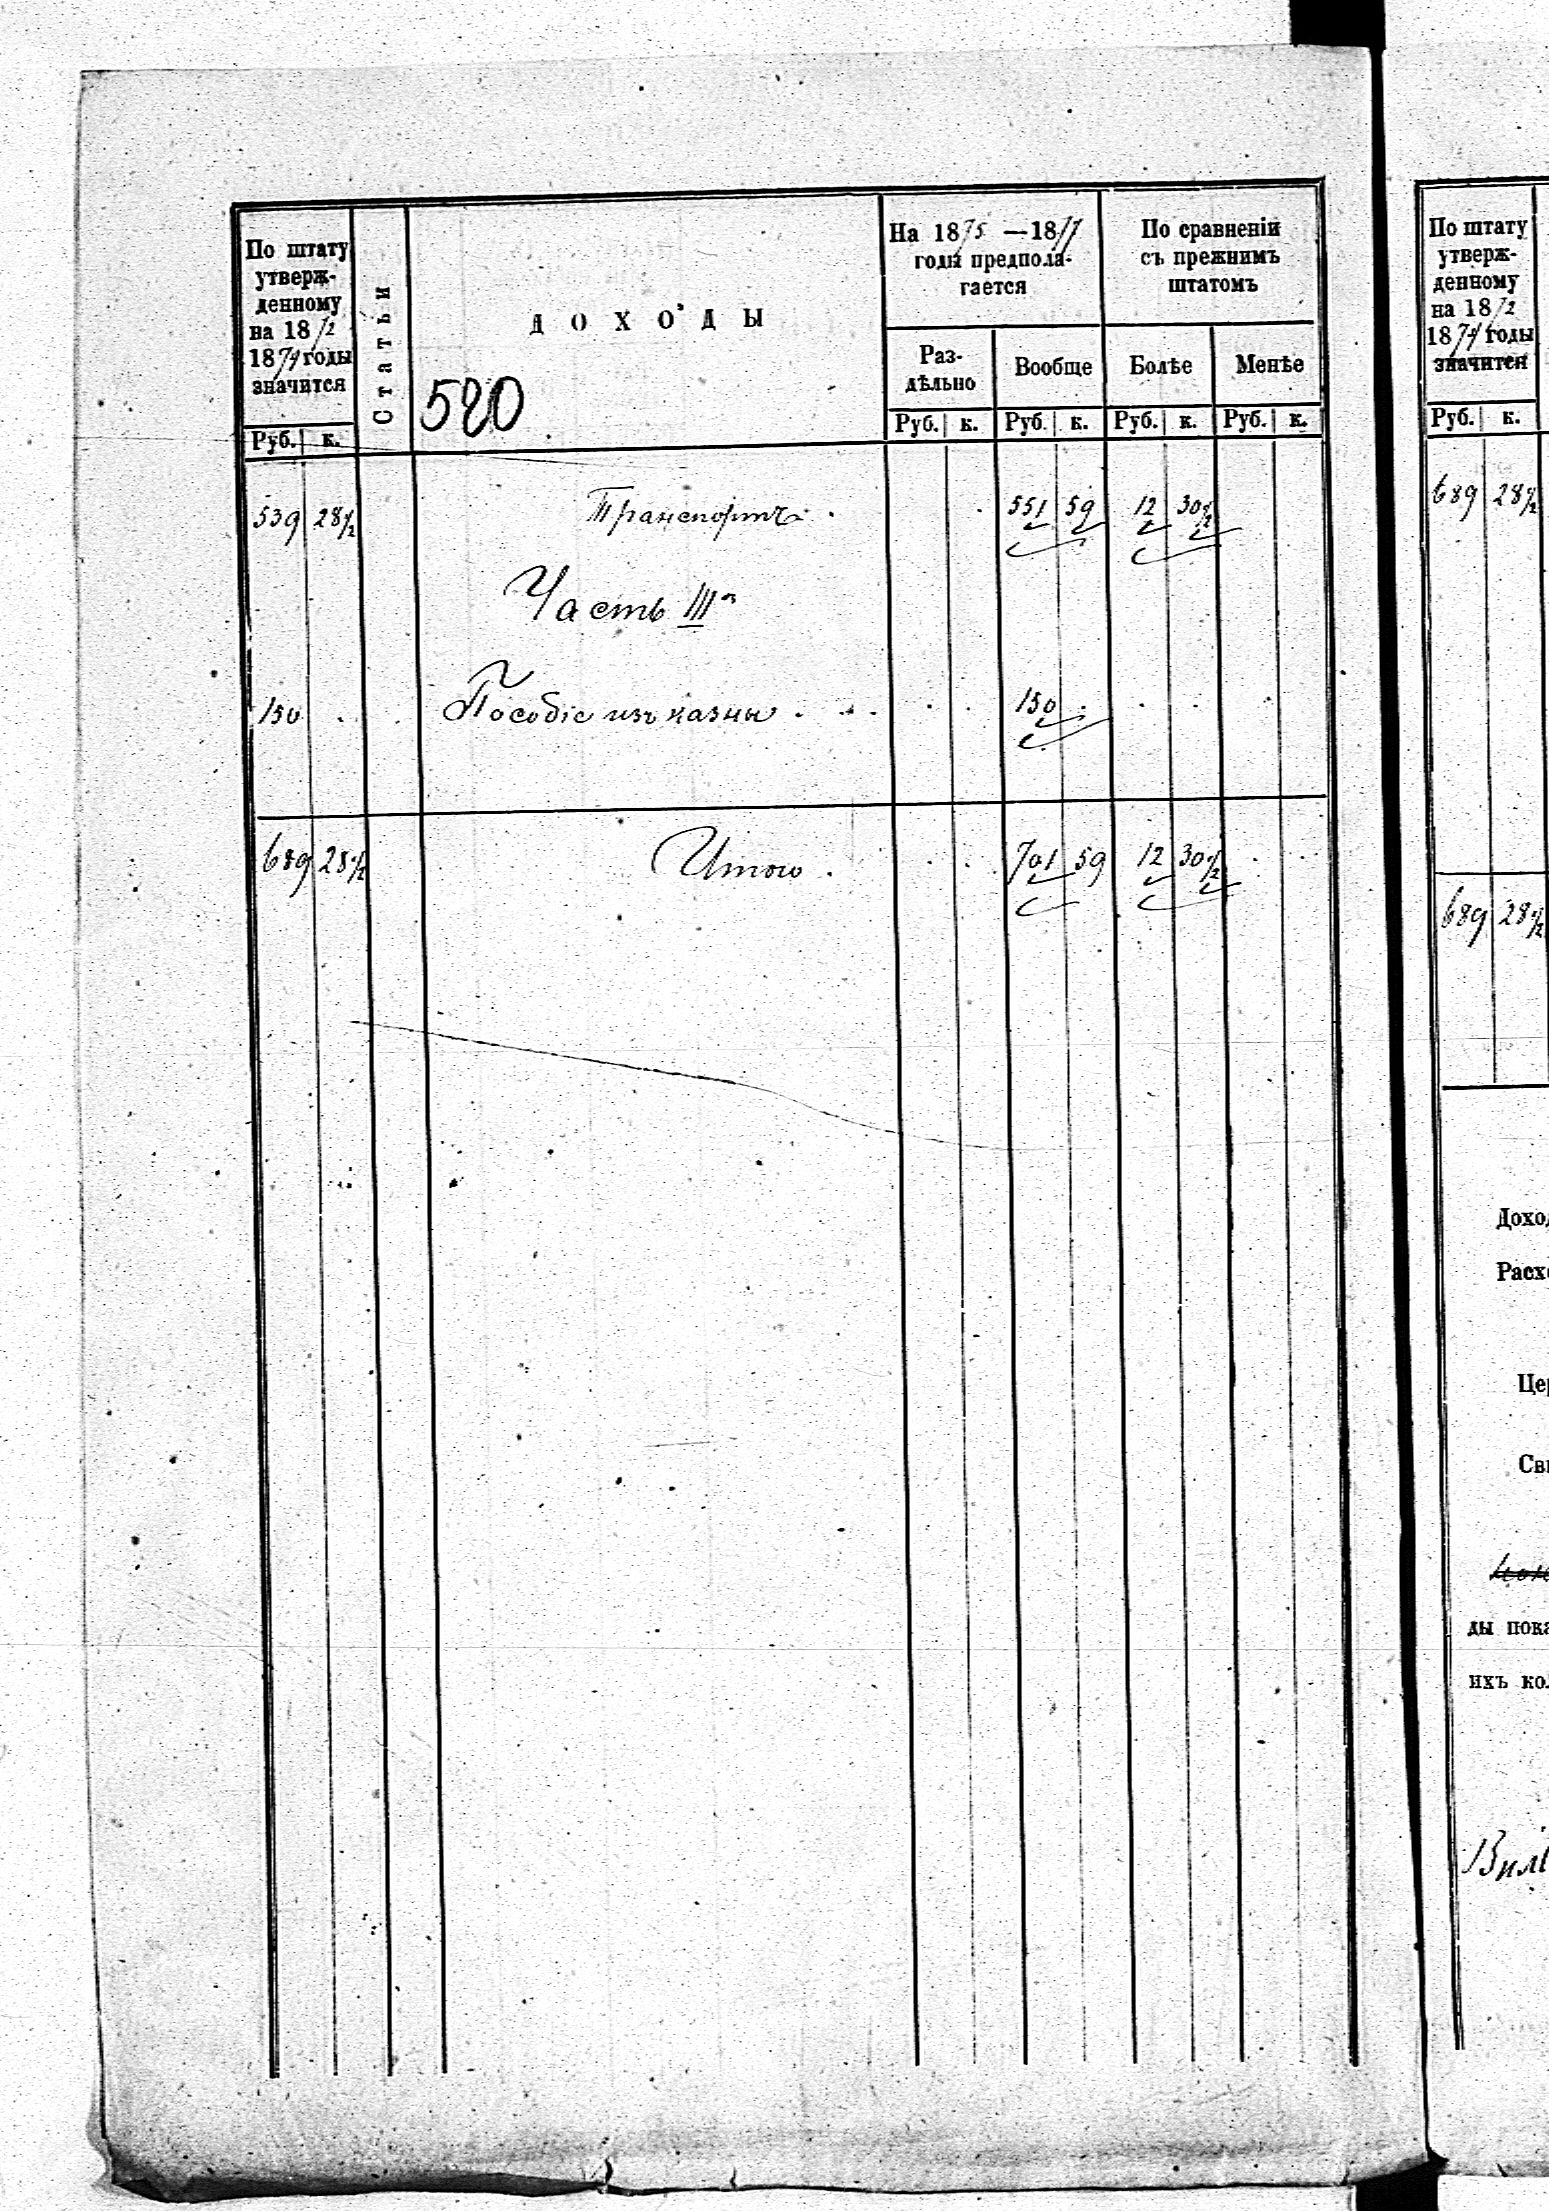 По штату
утверж-
денному
на 1872
1874 годы
значится
Руб. к.
Статьи
ДОХОДЫ
520
На 1875 — 1877
годы предпола-
гается
Раз-
дѣльно
Вообще
Руб. к. Руб. к.
По сравненіи
съ прежнимъ
штатомъ
Болѣе
Менѣе
Руб. к. Руб. к.
539 28½ Транспортъ . . 551 59 12 30½
Часть III
150 . . Пособіе изъ казны . . . . . 150 . . . .
689 28½ Итого . . . 701 59 12 30½ . .
По штату
утверж-
денному
на 1872
1874 годы
значится
Руб. к.
689 28½
689 28½
Дохо
Расх
Цер
Св
ды пока
ихъ ко
Вил